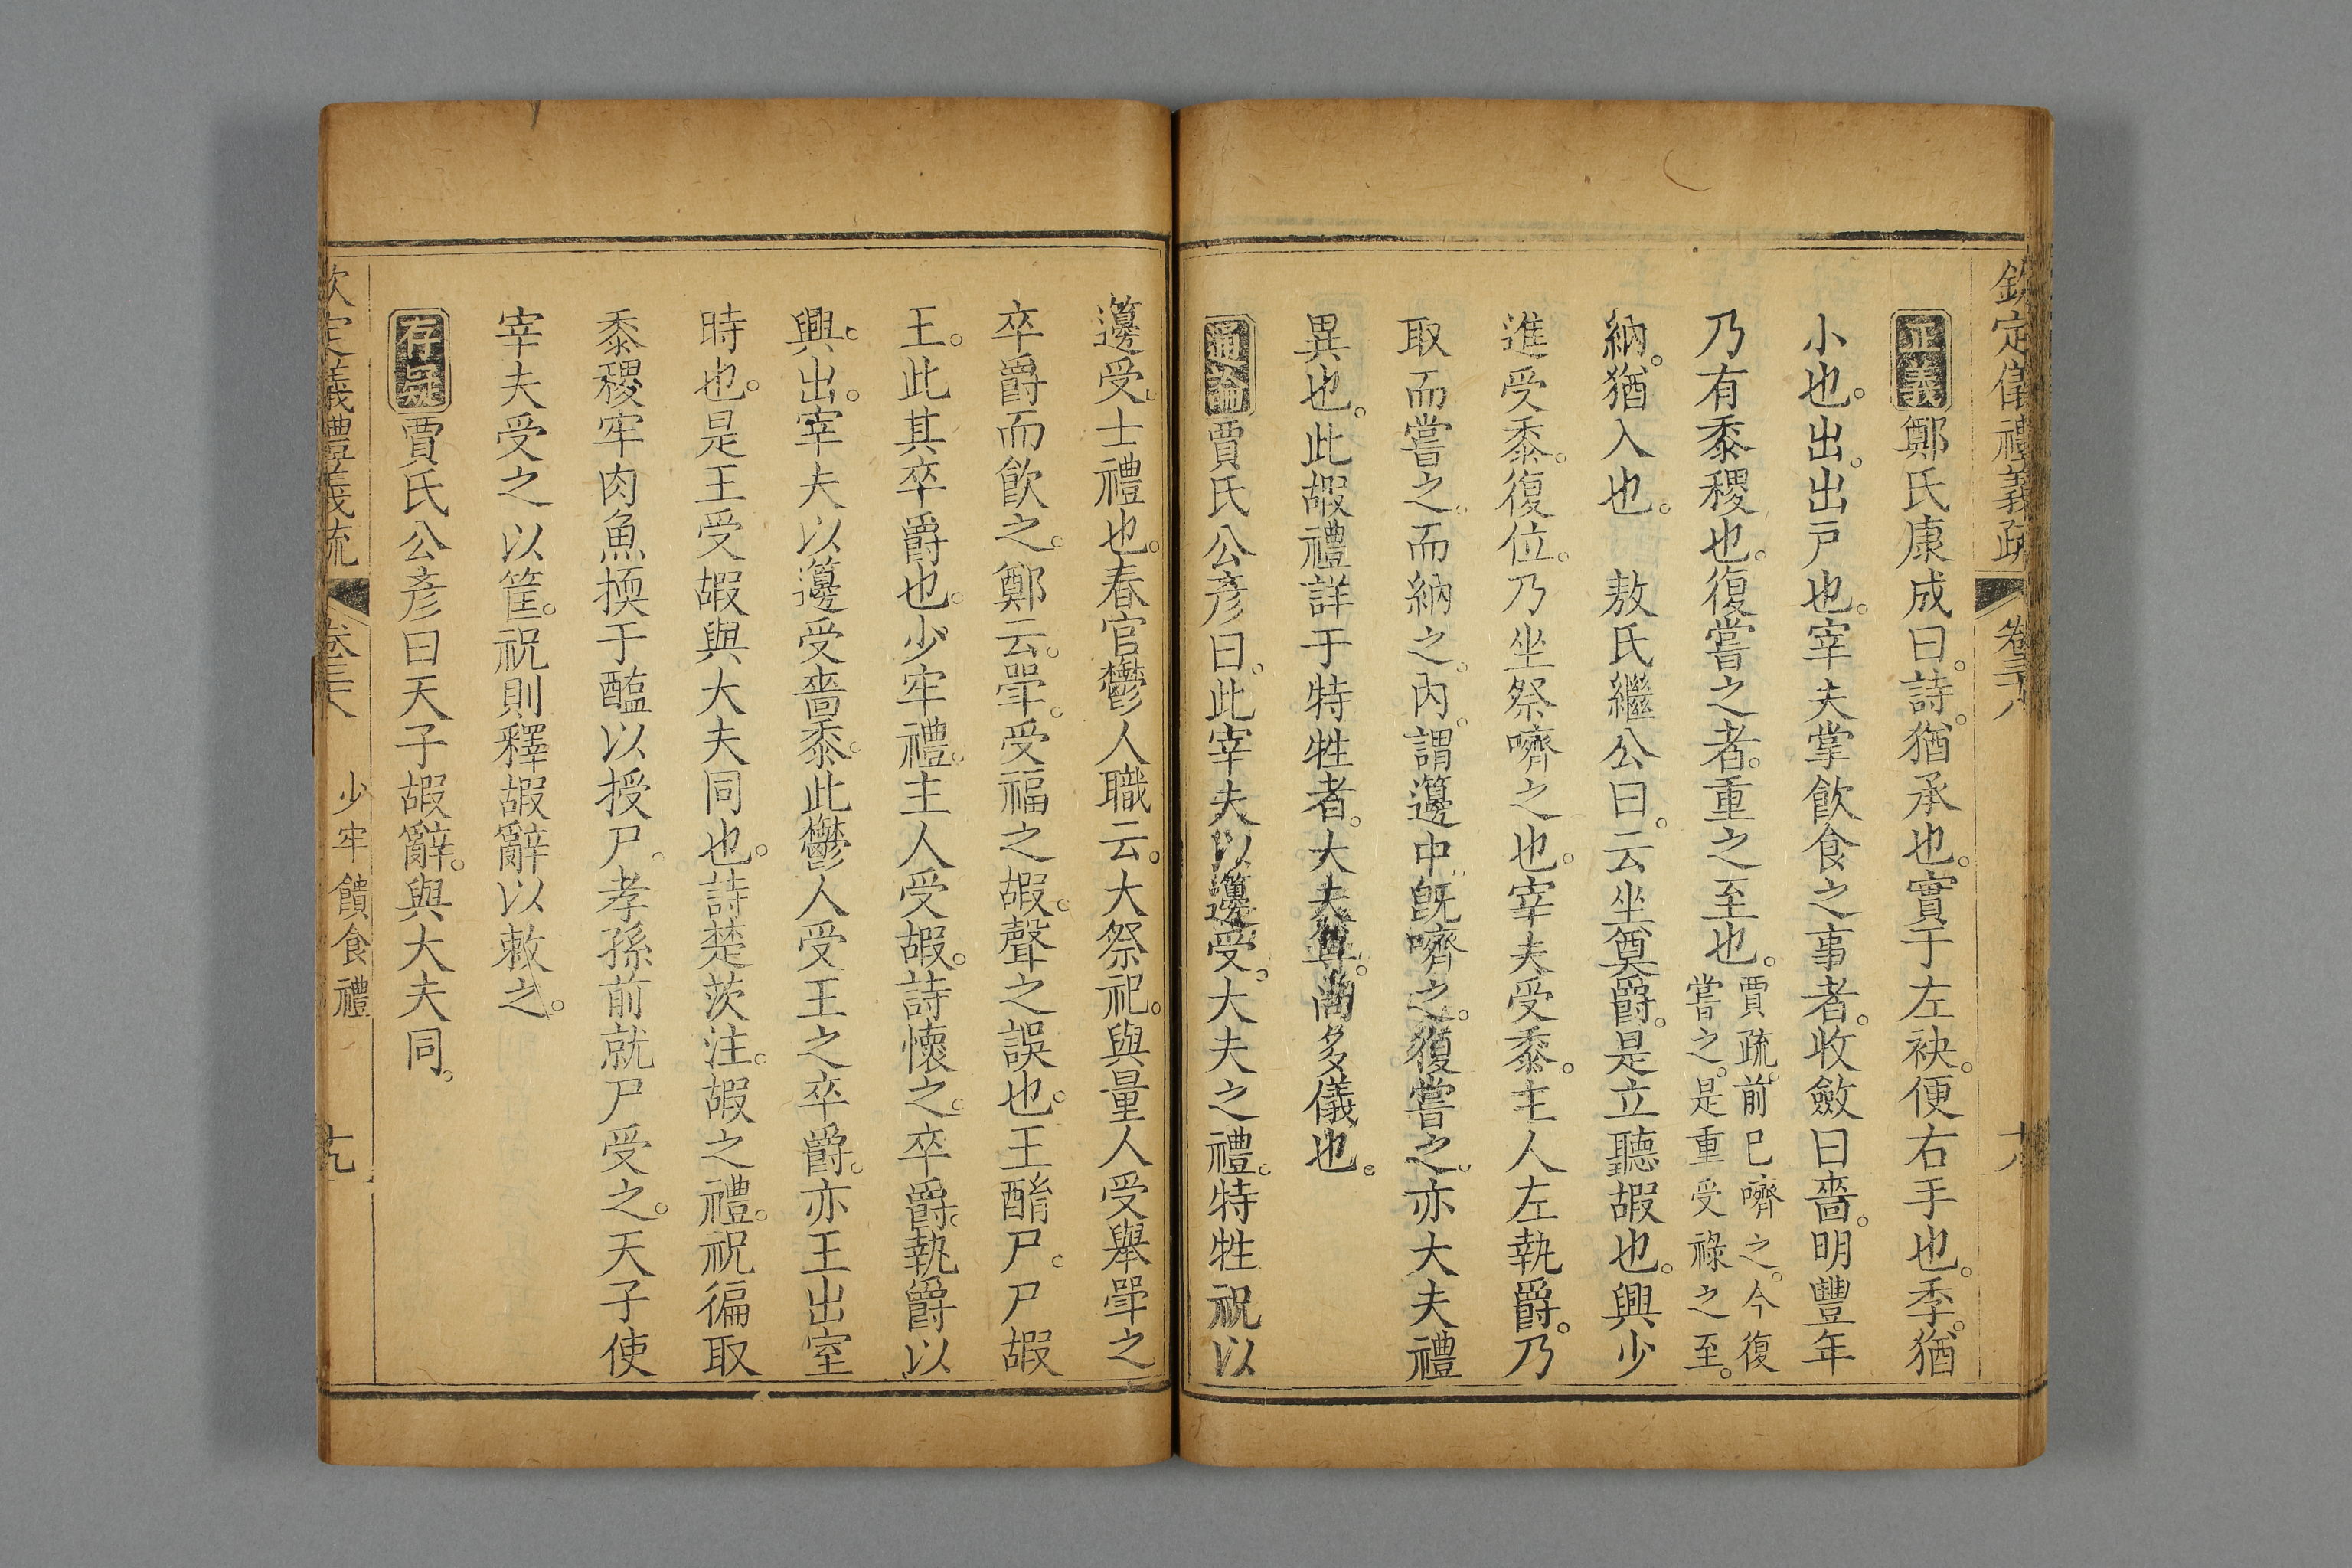 欽定儀禮義疏 卷三十八 十八
正義鄭氏康成曰。詩。猶承也。實于左袂。便右手也。季。猶
小也。出。出戸也。宰夫掌飲食之事者。收斂曰嗇。明豐年
乃有黍稷也。復嘗之者。重之至也。賈疏。前已嚌之。今復嘗之。是重受祿之至。
納。猶入也。 敖氏繼公曰。云坐奠爵。是立聽嘏也。興少
進受黍。復位。乃坐祭嚌之也。宰夫受黍。主人左執爵。乃
取而嘗之。而納之。內。謂籩中。既嚌之。復嘗之。亦大夫禮
異也。此嘏禮詳于特牲者。大夫尊。尚多儀也。
通論賈氏公彥曰。此宰夫以籩受。大夫之禮。特牲祝以
籩受。士禮也。春官鬱人職云。大祭祀。與量人受舉斝之
卒爵而飲之。鄭云。斝。受福之嘏。聲之誤也。王酳尸。尸嘏
王。此其卒爵也。少牢禮。主人受嘏。詩懷之。卒爵。執爵以
興。出。宰夫以籩受嗇黍。此鬱人受王之卒爵。亦王出室
時也。是王受嘏與大夫同也。詩楚茨注。嘏之禮。祝徧取
黍稷牢肉魚擩于醢以授尸。孝孫前就尸受之。天子使
宰夫受之以筐。祝則釋嘏辭以敕之。
存疑賈氏公彥曰天子嘏辭。與大夫同。
欽定儀禮義疏 卷三十八 少牢饋食禮 十九